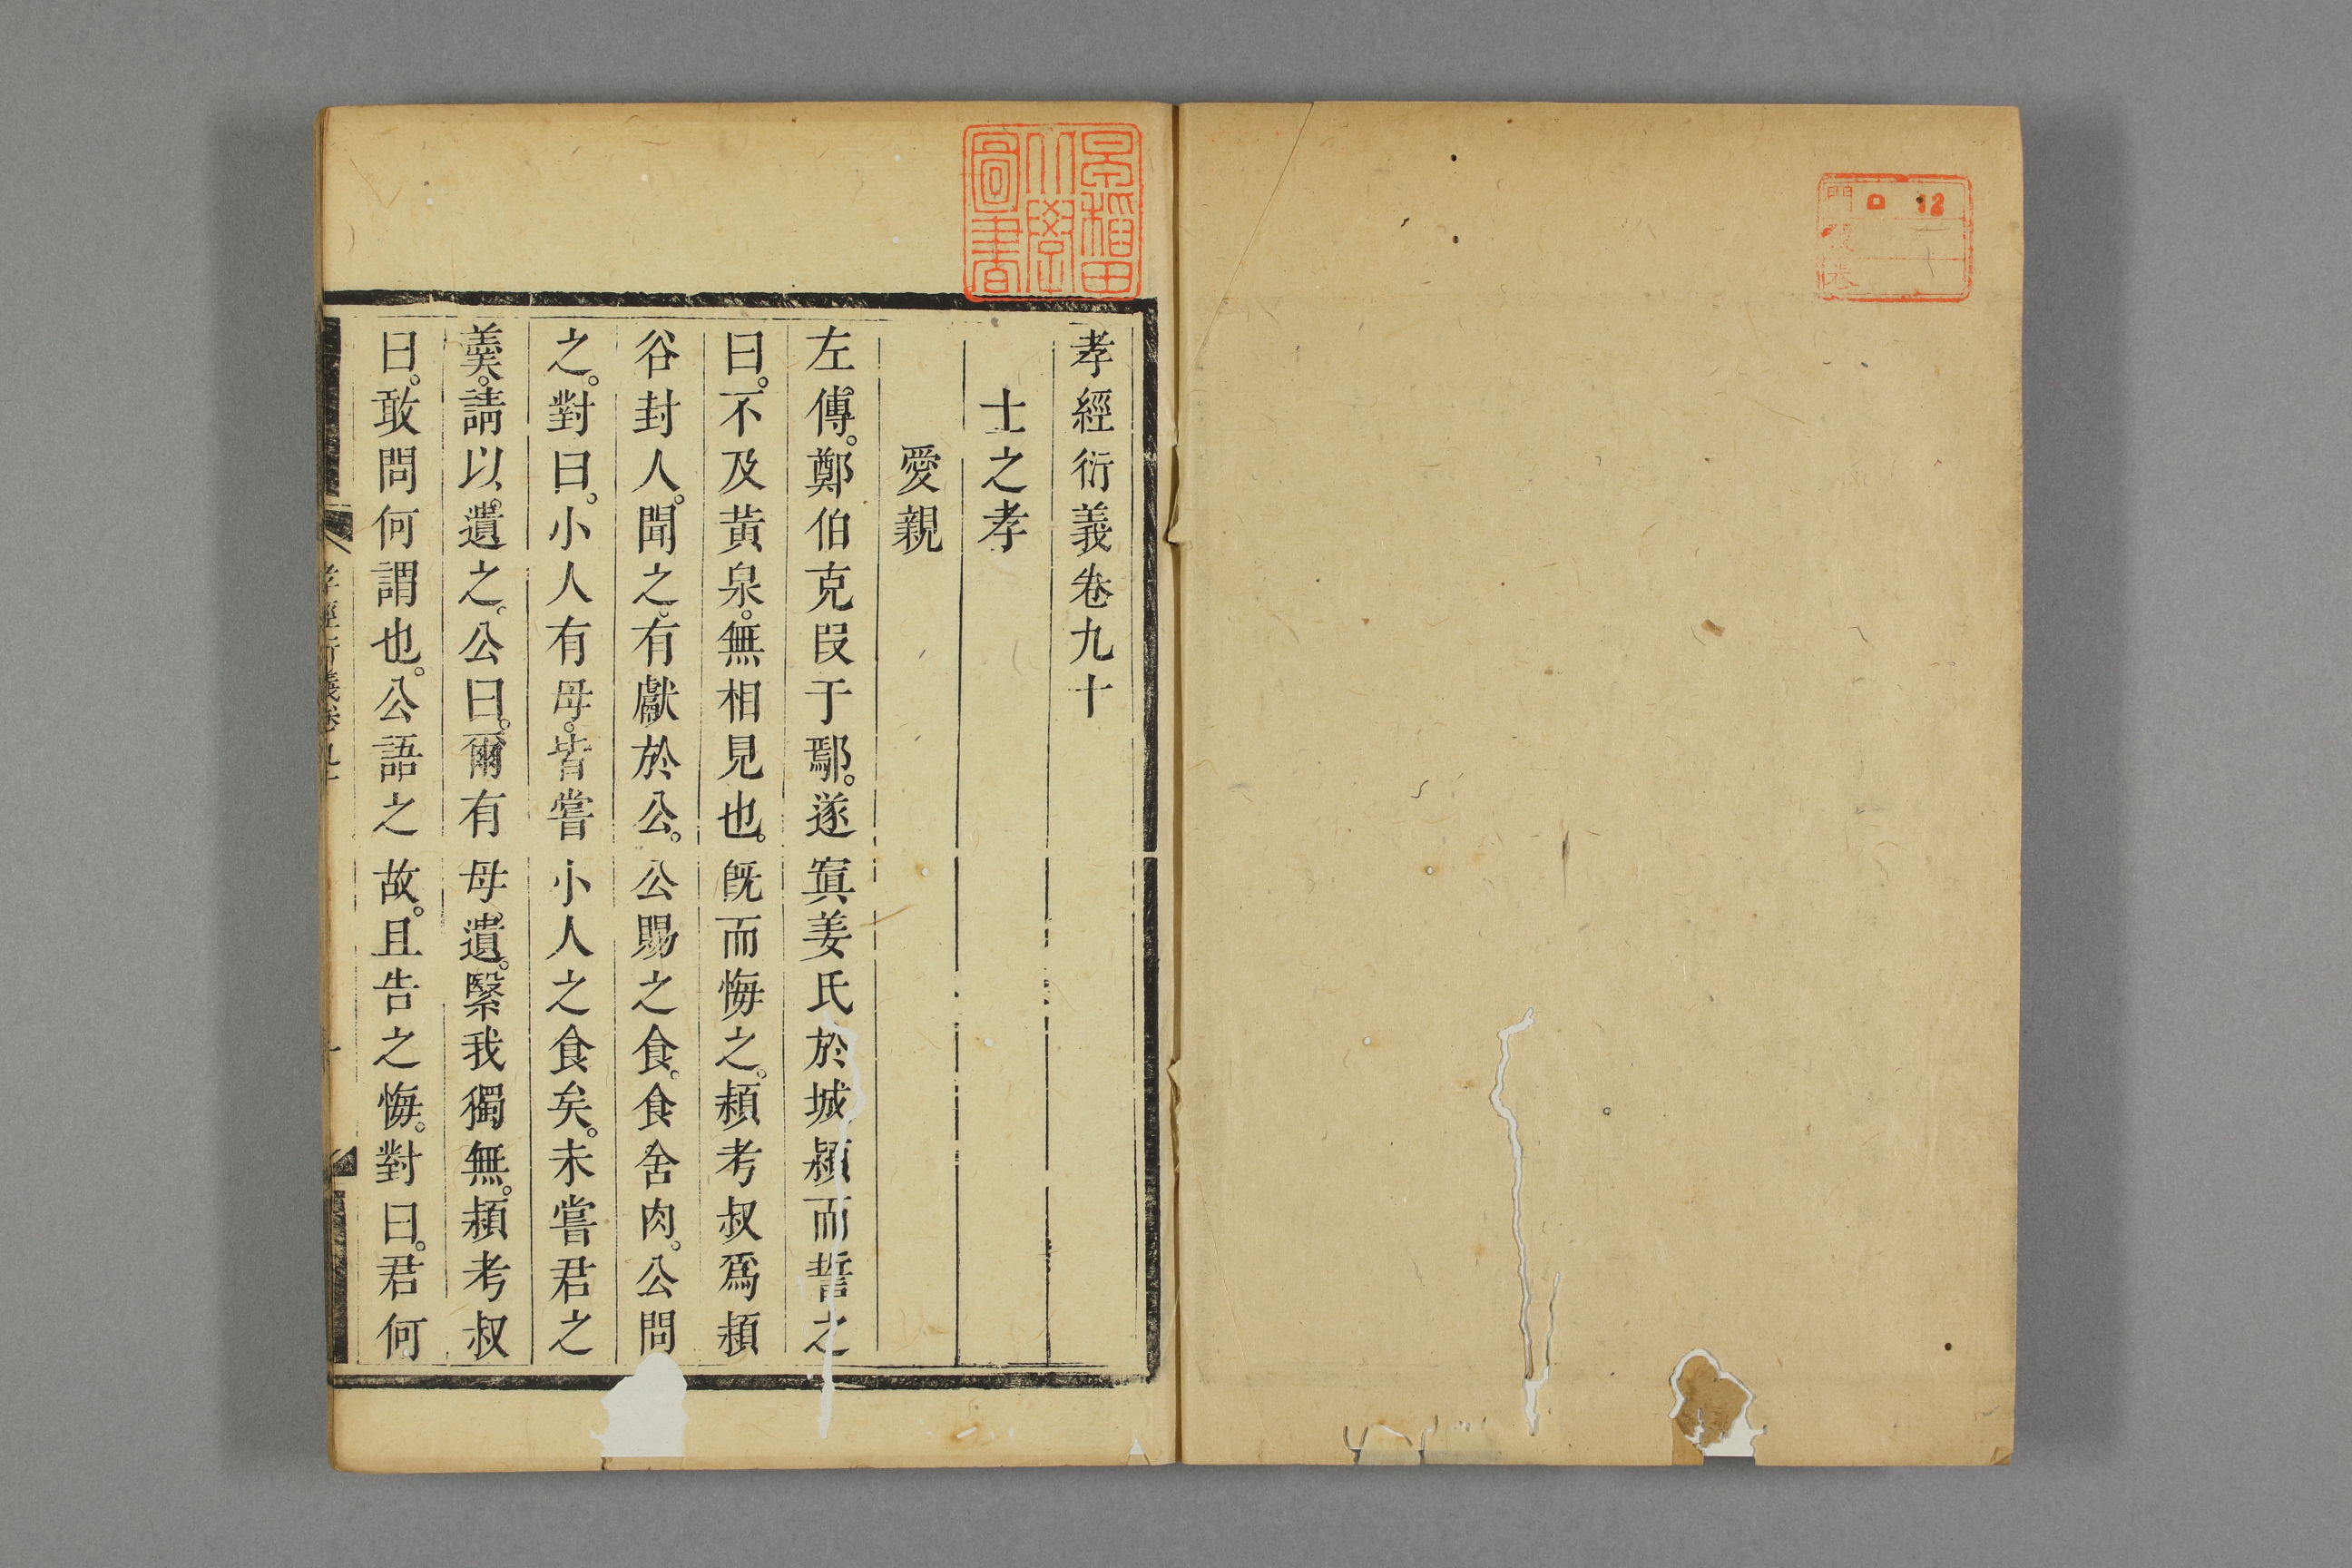 門 ロ 12
早稲田
大學
圖書
孝經衍義卷九十
士之孝
愛親
左傳。鄭伯克段于鄢。遂寘姜氏於城潁而誓之
曰。不及黃泉。無相見也。旣而悔之。潁考叔爲潁
谷封人。聞之。有獻於公。公賜之食。食舍肉。公問
之。對曰。小人有母。皆嘗小人之食矣。未嘗君之
羹。請以遺之。公曰。爾有母遺。繄我獨無。潁考叔
曰。敢問何謂也。公語之故。且告之悔。對曰。君何
孝經衍義卷九十